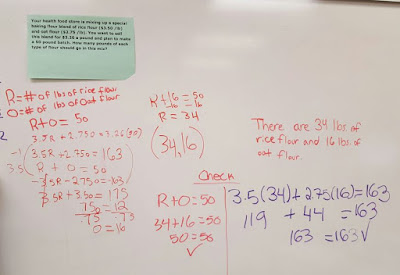 Your health food store is mixing up a special
baking flour blend of rice flour ($3.50 /lb)
and oat flour ($2.75 /lb). You want to sell
the blend for $3.26 a pound and plan to make
a 50 pound batch. How many pounds of each
type of flour should go in this mix?
R=# of lbs of rice flour
O=# of lbs of oat flour
R+O=50
3.5R + 2.75O = 3.26(50)
-1(3.5R+2.75O=163)
3.5(R + O = 50)
-3.5R-2.75O=-163
3.5R+3.5O=175
.75O=12
.75 .75
O=16
R+16=50
-16 -16
R=34
(34,16)
Check
R+O=50
34+16=50
50=50
✓
3.5(34)+2.75(16)=163
119 + 44 =163
163 =163✓
There are 34 lbs of
rice flour and 16 lbs of
oat flour.